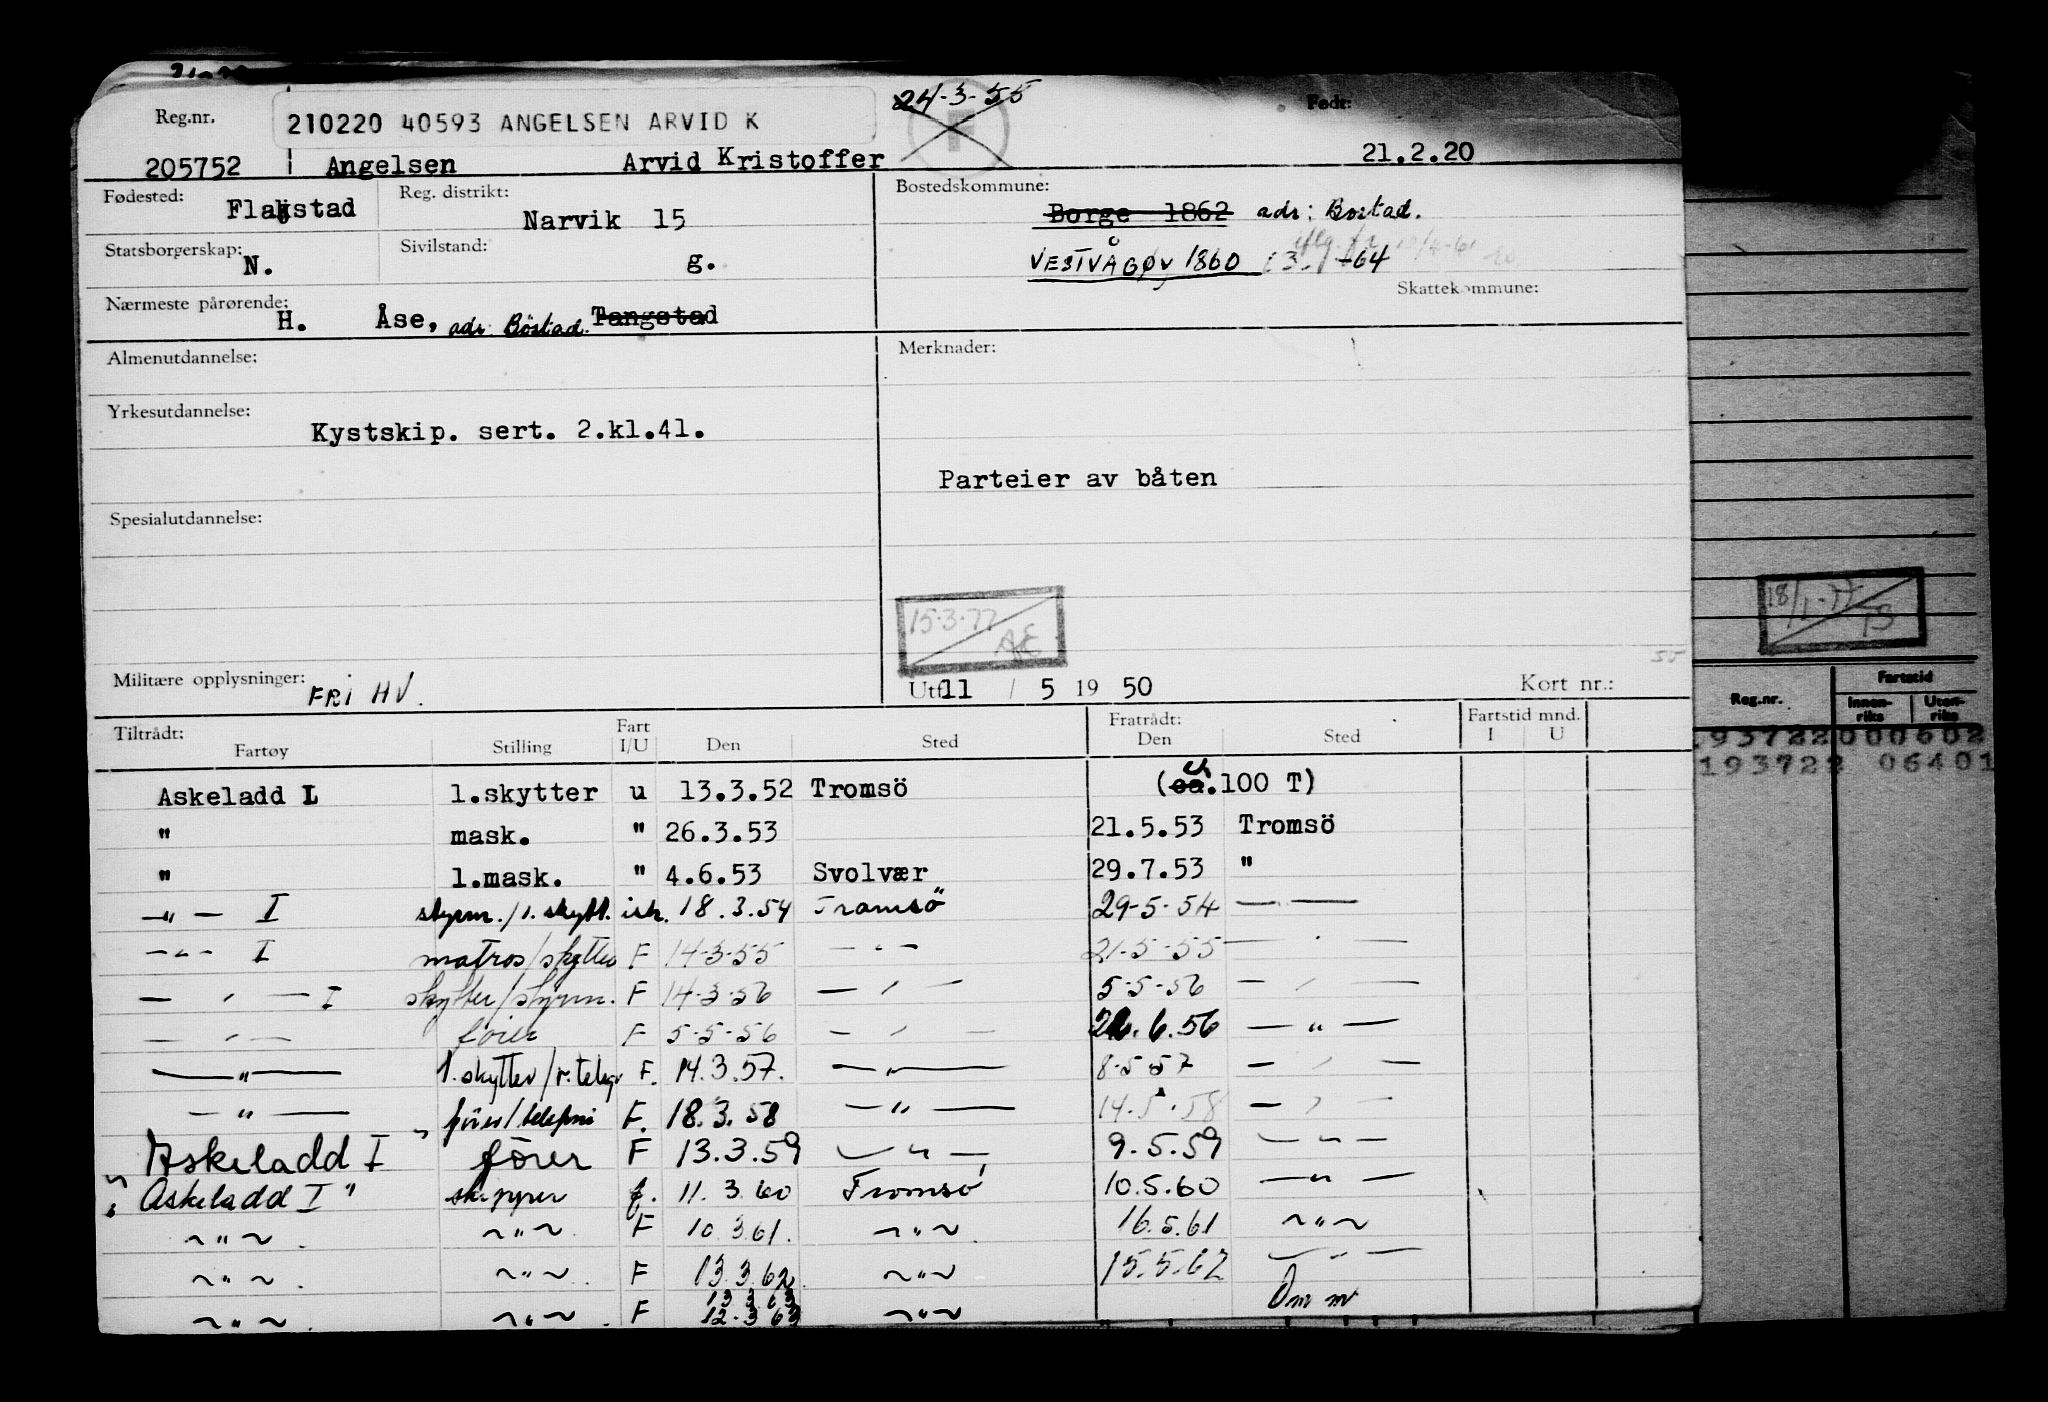 24-3-55
Reg.nr. 210220 40593 ANGELSEN ARVID K F Født:
205752 Angelsen Arvid Kristoffer 21.2.20
Fødested: Flakstad Reg. distrikt: Narvik 15 Bostedskommune: Borge 1862 adr: Bostad.
Statsborgerskap: N. Sivilstand: g. VESTVÅGØY 1860 -64
Skattekommune:
Nærmeste pårørende: H. Åse, adr Böstad. Tangstad
Almenutdannelse: Merknader:
Yrkesutdannelse:
Kystskip. sert. 2.kl.41.
Parteier av båten
Spesialutdannelse:
15-3-77 AE
18/1-77 TB
Militære opplysninger: FRI HV. Utf. 11 / 5 19 50 Kort nr.:
Reg.nr. Fartstid Innen-riks Uten-riks
Tiltrådt: Fratrådt: Fartstid mnd.
Fartøy Stilling Fart I/U Den Sted Den Sted I U
193722000602
193722 06401
Askeladd I 1.skytter u 13.3.52 Tromsö (ca.100 T)
" mask. " 26.3.53 21.5.53 Tromsö
" 1.mask. " 4.6.53 Svolvær 29.7.53 "
— " — I styrm./1. skytt. ish. 18.3.54 Tromsö 29-5-54 — —
— " — I matros/skytter F 14-3-55 — " — 21-5-55 — " —
— " — I skytter/styrm. F 14-3-56 — " — 5-5-56 — " —
— " — förer F 5-5-56 — " — 26.6.56 — " —
— " — 1. skytter/r.telegr F. 14.3.57. — " — 8-5-57 — " —
— " — förer/telefoni F. 18.3.58 — " — 14-5-58 — " —
Askeladd I förer F 13.3.59 — " — 9.5.59 — " —
" Askeladd I " skipper f. 11.3.60 Tromsö 10.5.60 — " —
~ " ~ . ~ " ~ . F 10.3.61. ~ " ~ . 16.5.61 ~ " ~
~ " ~ . ~ " ~ . F 13.3.62 ~ " ~ 15.5.62 — " —
~ " ~ . ~ " ~ . F 12.3.63 ~ " ~ Om m